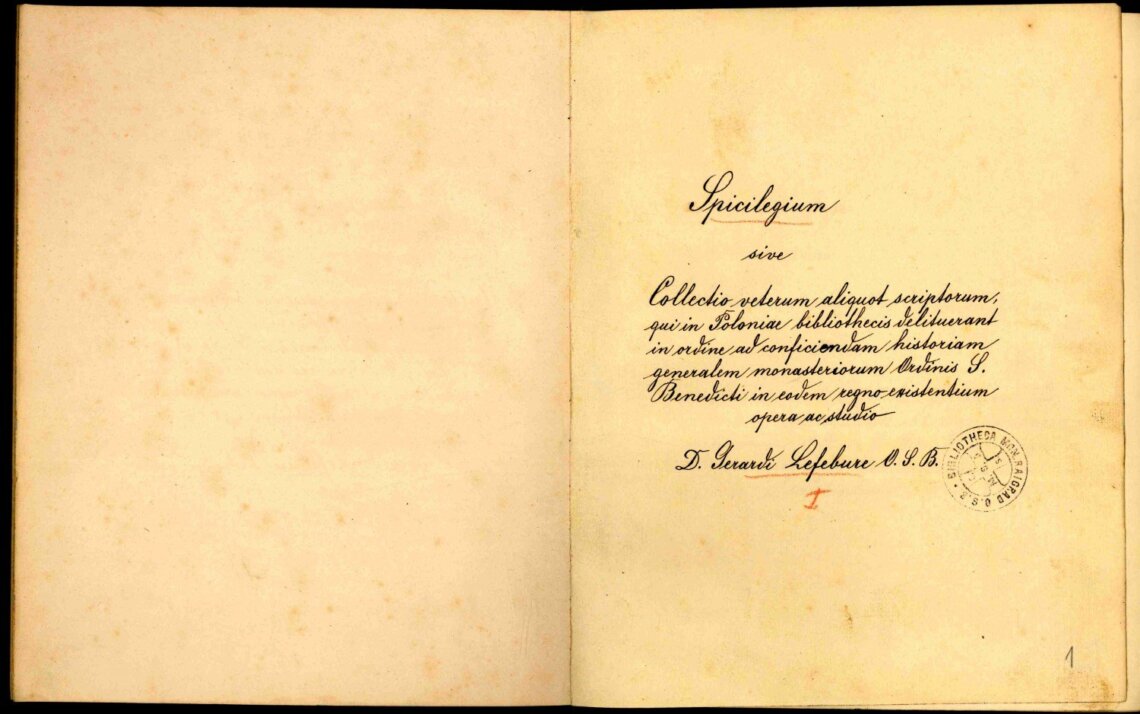 Spicilegium
sive
Collectio veterum aliquot scriptorum,
qui in Poloniae bibliothecis delituerant
in ordine ad conficiendam historiam
generalem monasteriorum Ordinis S.
Benedicti in eodem regno existentium
opera ac studio
D. Gerardi Lefebure O. S. B.
I
BIBLIOTHECA MON. RAIGRAD O.S.B.
1